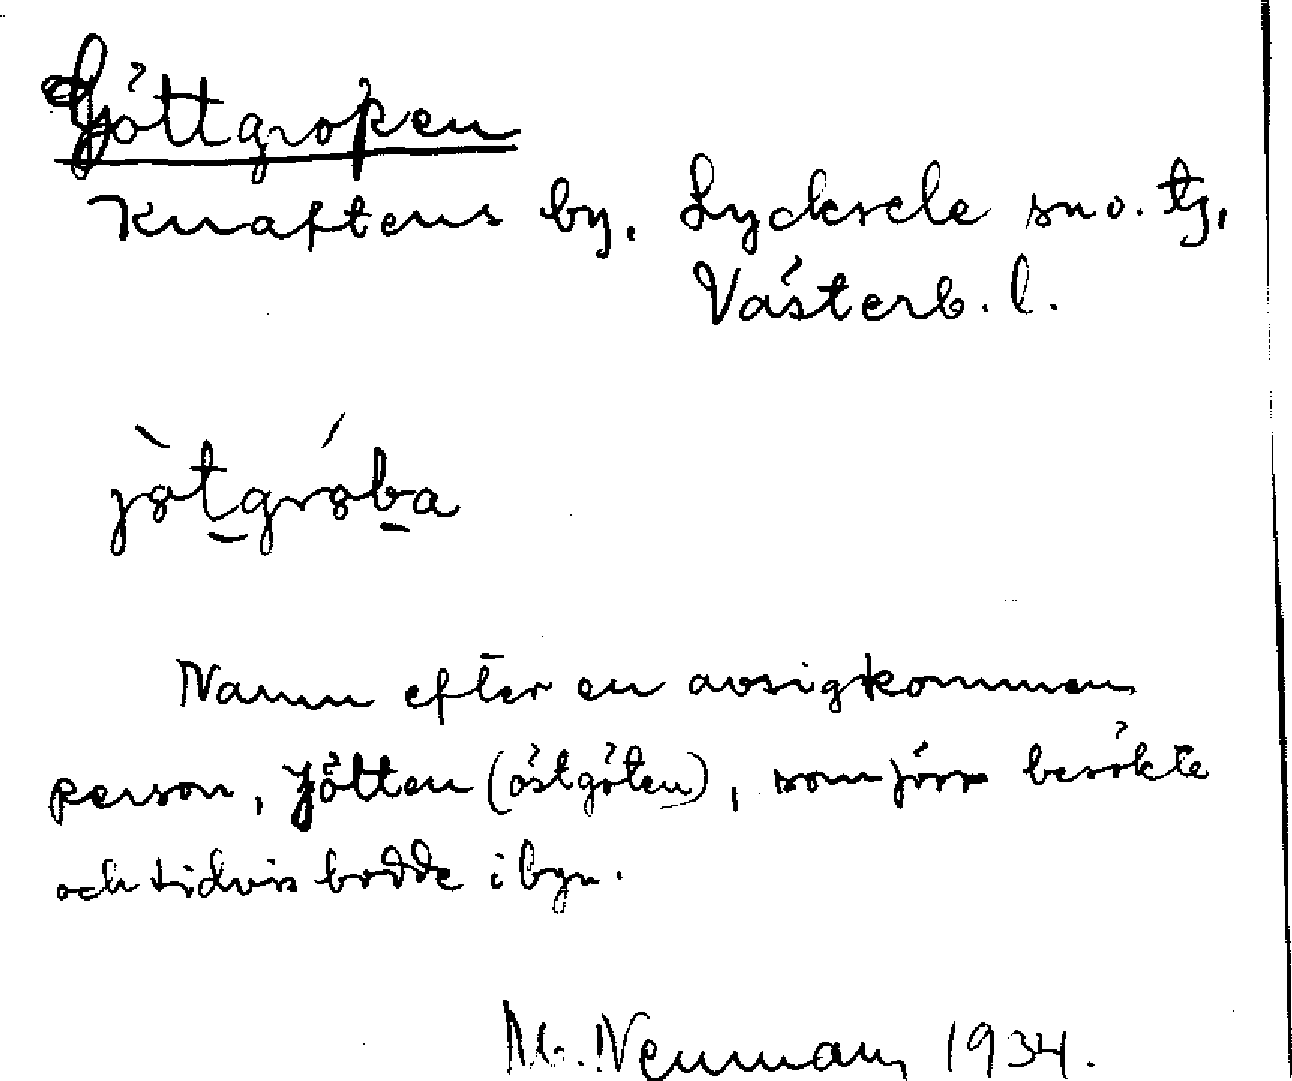 Jöttgropen
Knaftens by, Lycksele sn o. tg,
Västerb. l.
jòtgróba
Namn efter en avsigkommen
person, Jötten (östgöten), som förr besökte
och tidvis bodde i byn.
M. Neuman, 1934.